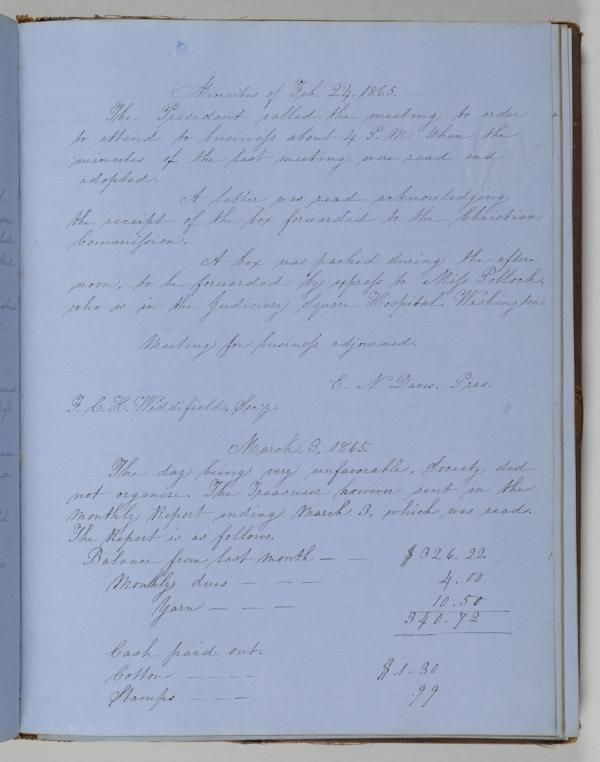 Minutes of Feb. 24. 1865.
The President called the meeting to order
to attend to business about 4 P.M. When the
minutes of the last meeting were read and
adopted.
A letter was read acknowledging
the receipt of the box forwarded to the Christian
Commission.
A box was packed during the after-
noon, to be forwarded by express to Miss Pollock,
who is in the Judiciary Square Hospital Washington.
Meeting for business adjourned.
E. N Davis. Pres.
F. C. H. Widdifield. Sec'y.
March. 3. 1865.
The day being very unfavorable. Society did
not organise. The Treasurer however sent in the
Monthly Report ending March. 3. which was read.
The Report is as follows.
Balance from last month — — $326.22.
Monthly dues — — — 4.00
Yarn — — — 10.50
340.72
Cash paid out.
Cotton — — — — $1.30
Stamps — — — .99